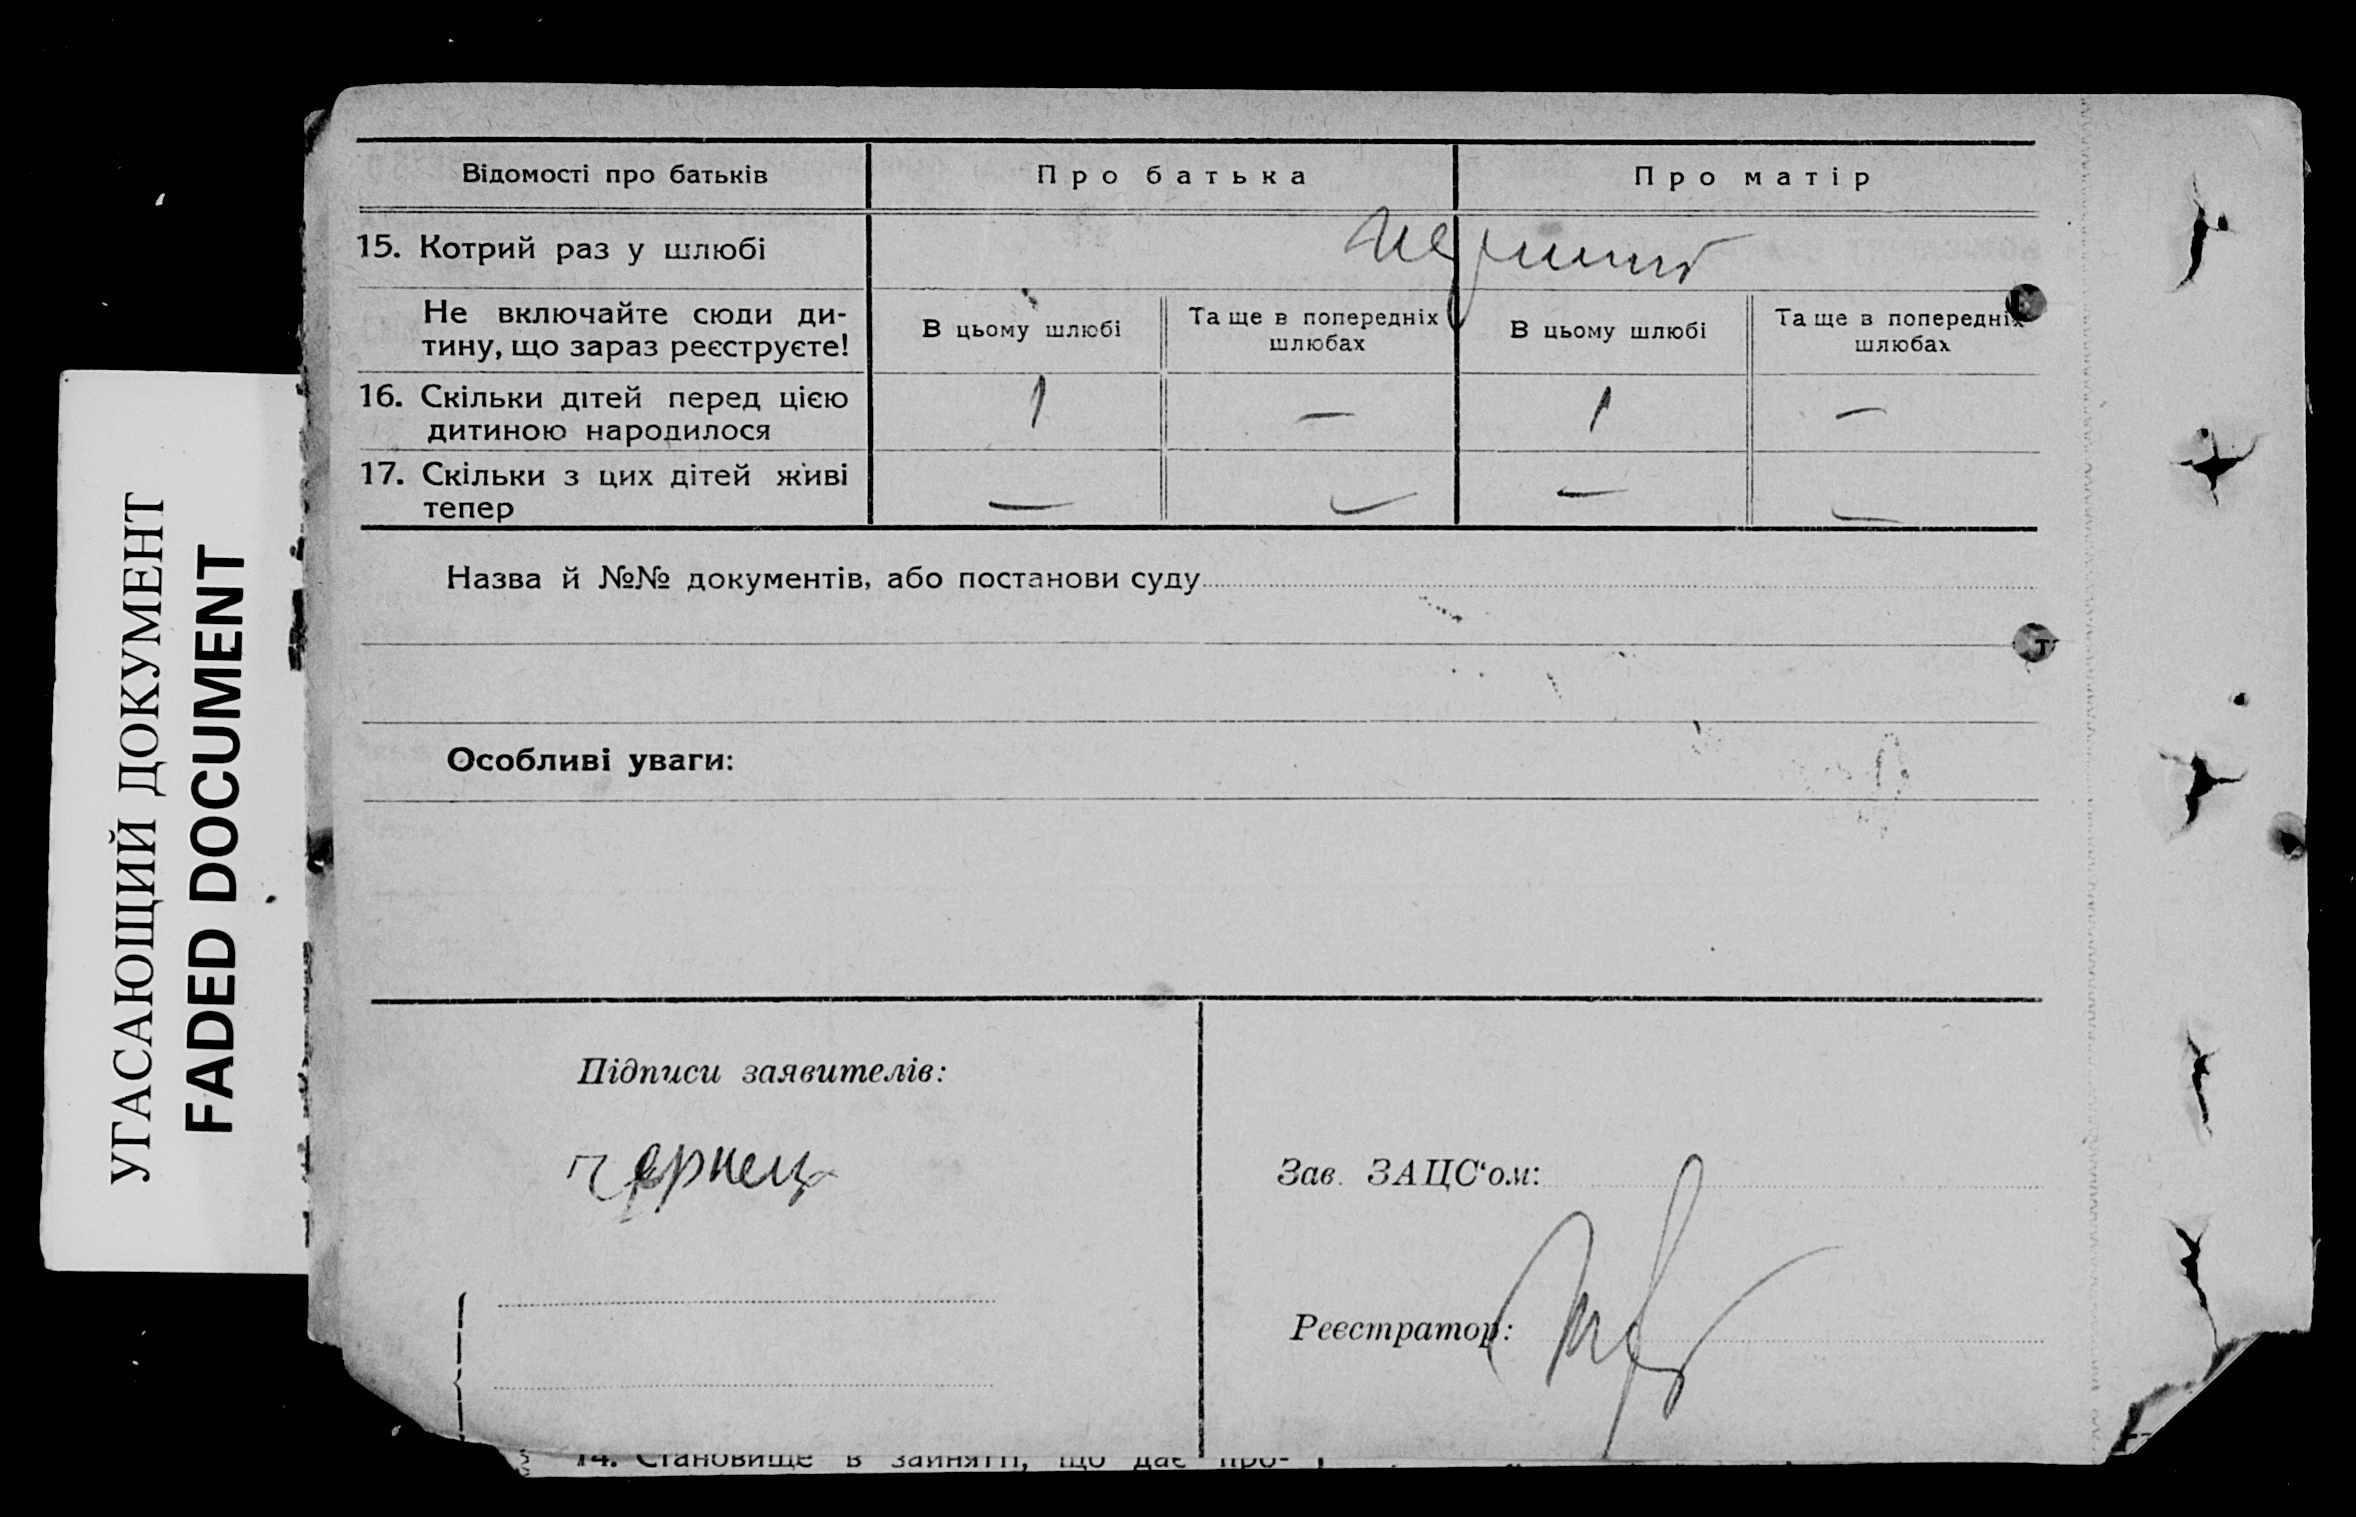 УГАСАЮЩИЙ ДОКУМЕНТ
FADED DOCUMENT
Відомості про батьків Про батька Про матір
15. Котрий раз у шлюбі
Не включайте сюди ди- В цьому шлюбі Та ще в попередніх В цьому шлюбі Та ще в попередніх
тину, що зараз реєструєте! шлюбах шлюбах
16. Скільки дітей перед цією 1 — 1 —
дитиною народилося
17. Скільки з цих дітей живі
тепер — — — —
Назва й №№ документів, або постанови суду
Особливі уваги:
Підписи заявителів:
Чернец
Зав. ЗАЦС‘ом:
Реєстратор:
14. Становище в занятті, що дає про-